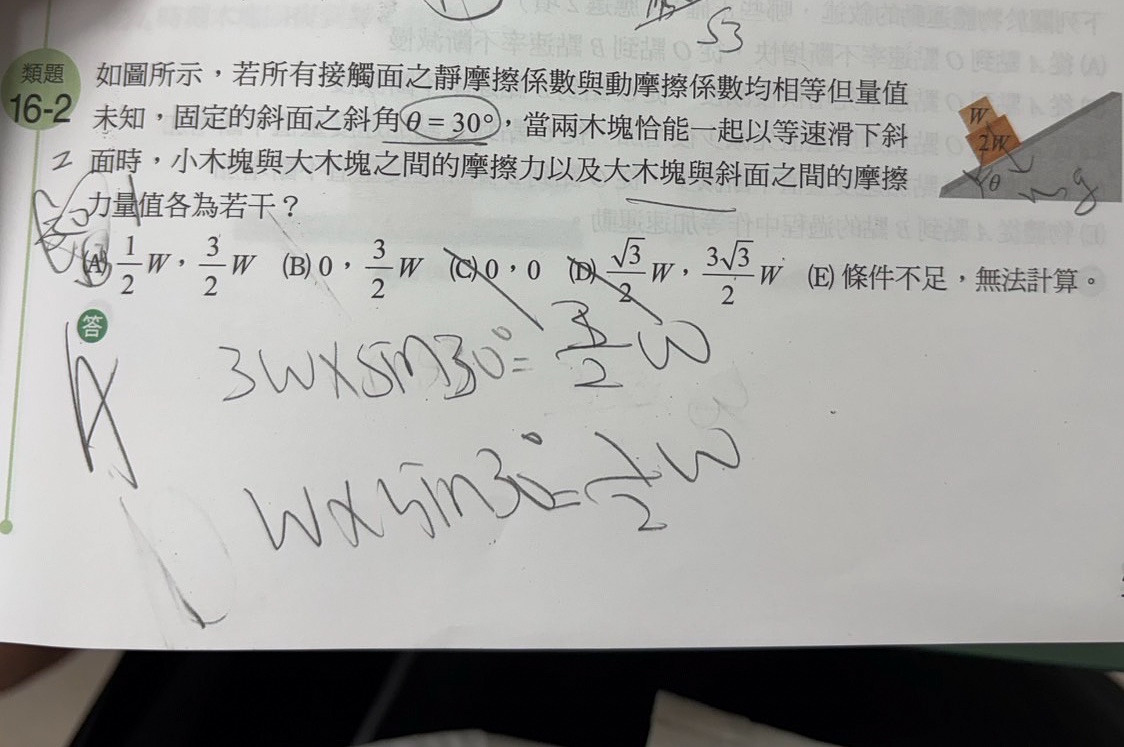 53
類題
16-2
如圖所示，若所有接觸面之靜摩擦係數與動摩擦係數均相等但量值
未知，固定的斜面之斜角θ = 30°，當兩木塊恰能一起以等速滑下斜
面時，小木塊與大木塊之間的摩擦力以及大木塊與斜面之間的摩擦
力量值各為若干？
W
2W
θ
mg
(A) 1/2 W，3/2 W (B) 0，3/2 W (C) 0，0 (D) √3/2 W，3√3/2 W (E) 條件不足，無法計算。
答
A
3W×sin30°= 3/2 W
W×sin30°= 1/2 W